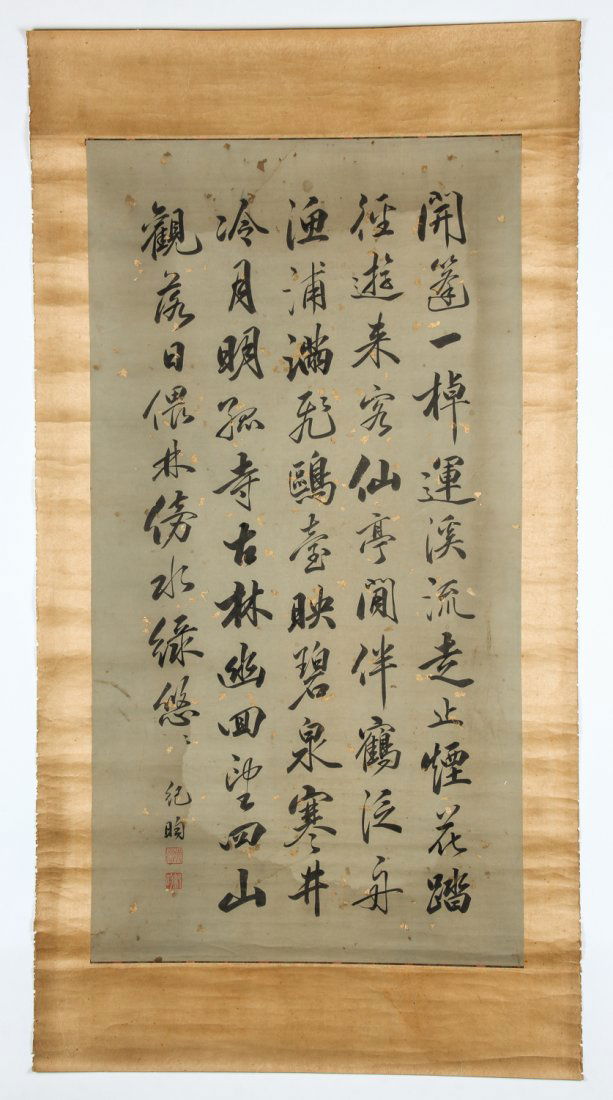 開篷一棹運溪流走止煙花踏
徑遊来客仙亭閒伴鶴泛舟
漁浦滿飛鷗臺映碧泉寒井
冷月明孤寺古林幽回望四山
觀落日偎林傍水綠悠〻
紀昀